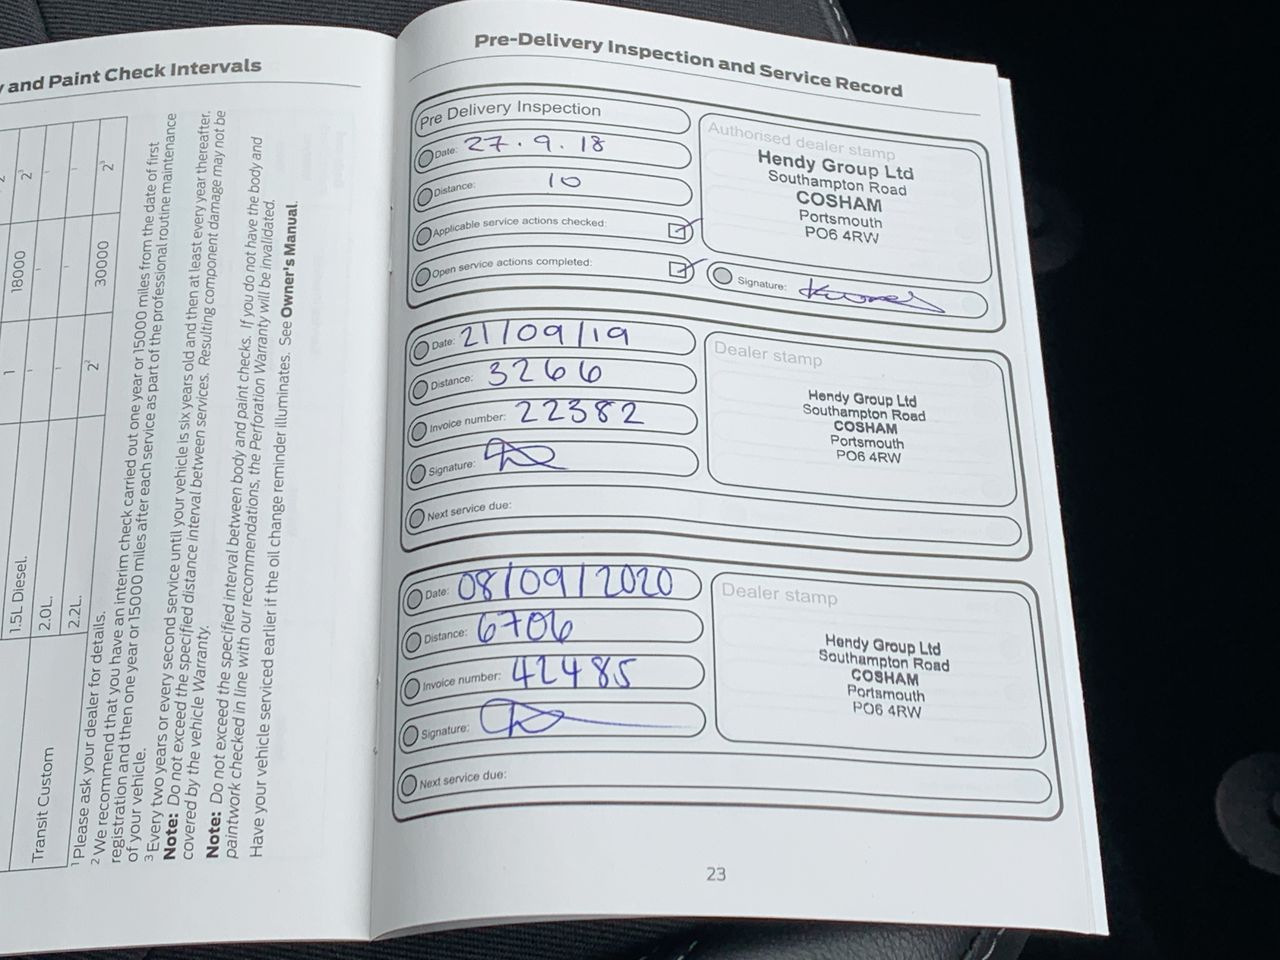 y and Paint Check Intervals
2
2³
-
-
2³
18000
-
-
30000
1
-
-
2²
1.5L Diesel.
2.0L.
2.2L.
Transit Custom
¹ Please ask your dealer for details.
² We recommend that you have an interim check carried out one year or 15000 miles from the date of first
registration and then one year or 15000 miles after each service as part of the professional routine maintenance
of your vehicle.
³ Every two years or every second service until your vehicle is six years old and then at least every year thereafter.
Note: Do not exceed the specified distance interval between services. Resulting component damage may not be
covered by the vehicle Warranty.
Note: Do not exceed the specified interval between body and paint checks. If you do not have the body and
paintwork checked in line with our recommendations, the Perforation Warranty will be invalidated.
Have your vehicle serviced earlier if the oil change reminder illuminates. See Owner's Manual.
Pre-Delivery Inspection and Service Record
Pre Delivery Inspection
Date: 27.9.18
Distance: 10
Applicable service actions checked:
Open service actions completed:
Authorised dealer stamp
Hendy Group Ltd
Southampton Road
COSHAM
Portsmouth
PO6 4RW
Signature:
Date: 21/09/19
Distance: 3266
Invoice number: 22382
Signature:
Next service due:
Dealer stamp
Hendy Group Ltd
Southampton Road
COSHAM
Portsmouth
PO6 4RW
Date: 08/09/2020
Distance: 6706
Invoice number: 42485
Signature:
Next service due:
Dealer stamp
Hendy Group Ltd
Southampton Road
COSHAM
Portsmouth
PO6 4RW
23